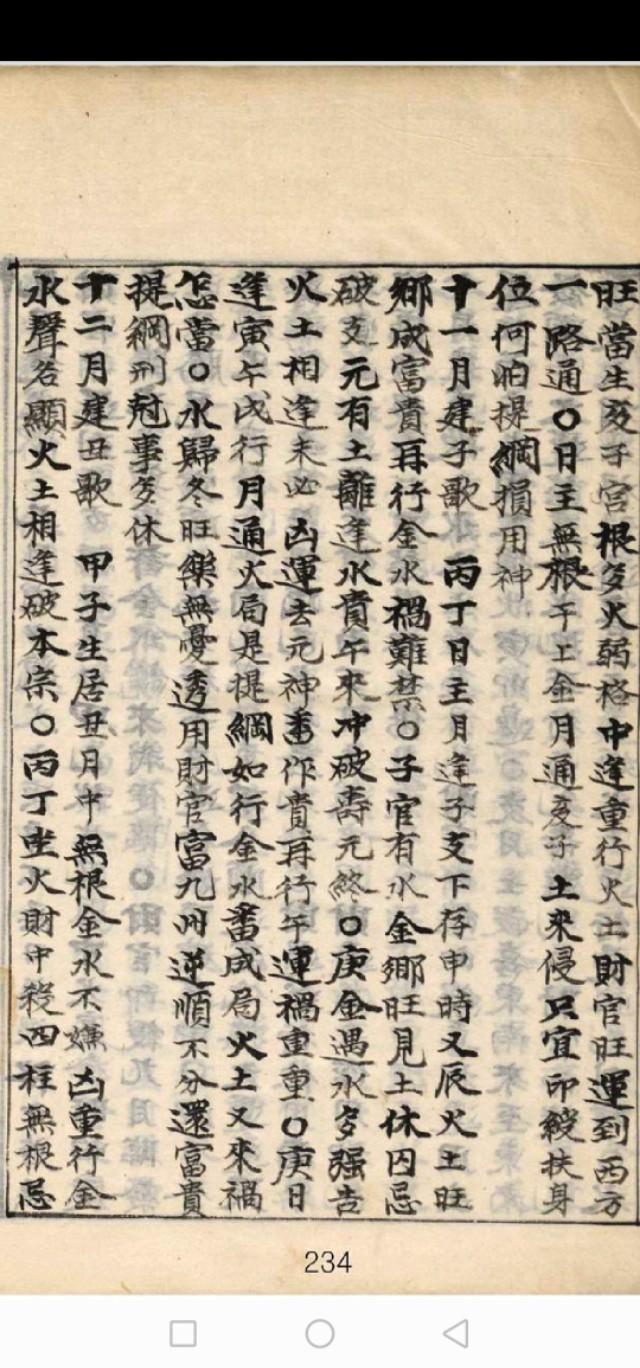 旺當生亥子宮根多火弱格中逢重行火土財官旺運到西方
一路通〇日主無根干上金月通亥子土来侵只宜印綬扶身
位何怕提綱損用神
十一月建子歌 丙丁日主月逢子支下存申時又辰火土旺
鄉成富貴再行金水禍難禁〇子官有水金鄉旺見土休囚忌
破支元有土離逢水貴午來冲破壽元終〇庚金遇水多强吉
火土相逢未必凶運去元神畨作貴再行午運禍重重〇庚日
逢寅午戌行月通火局是提綱如行金水畨成局火土又來禍
怎當〇水歸冬旺樂無憂透用財官富九州逆順不分還富貴
提綱刑尅事多休
十二月建丑歌 甲子生居丑月中無根金水不嫌凶重行金
水聲名顯火土相逢破本宗〇丙丁坐火財中殺四柱無根忌
234